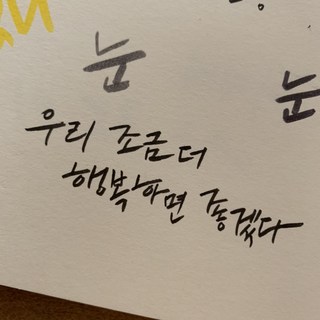 눈
눈
우리 조금 더
행복하면 좋겠다